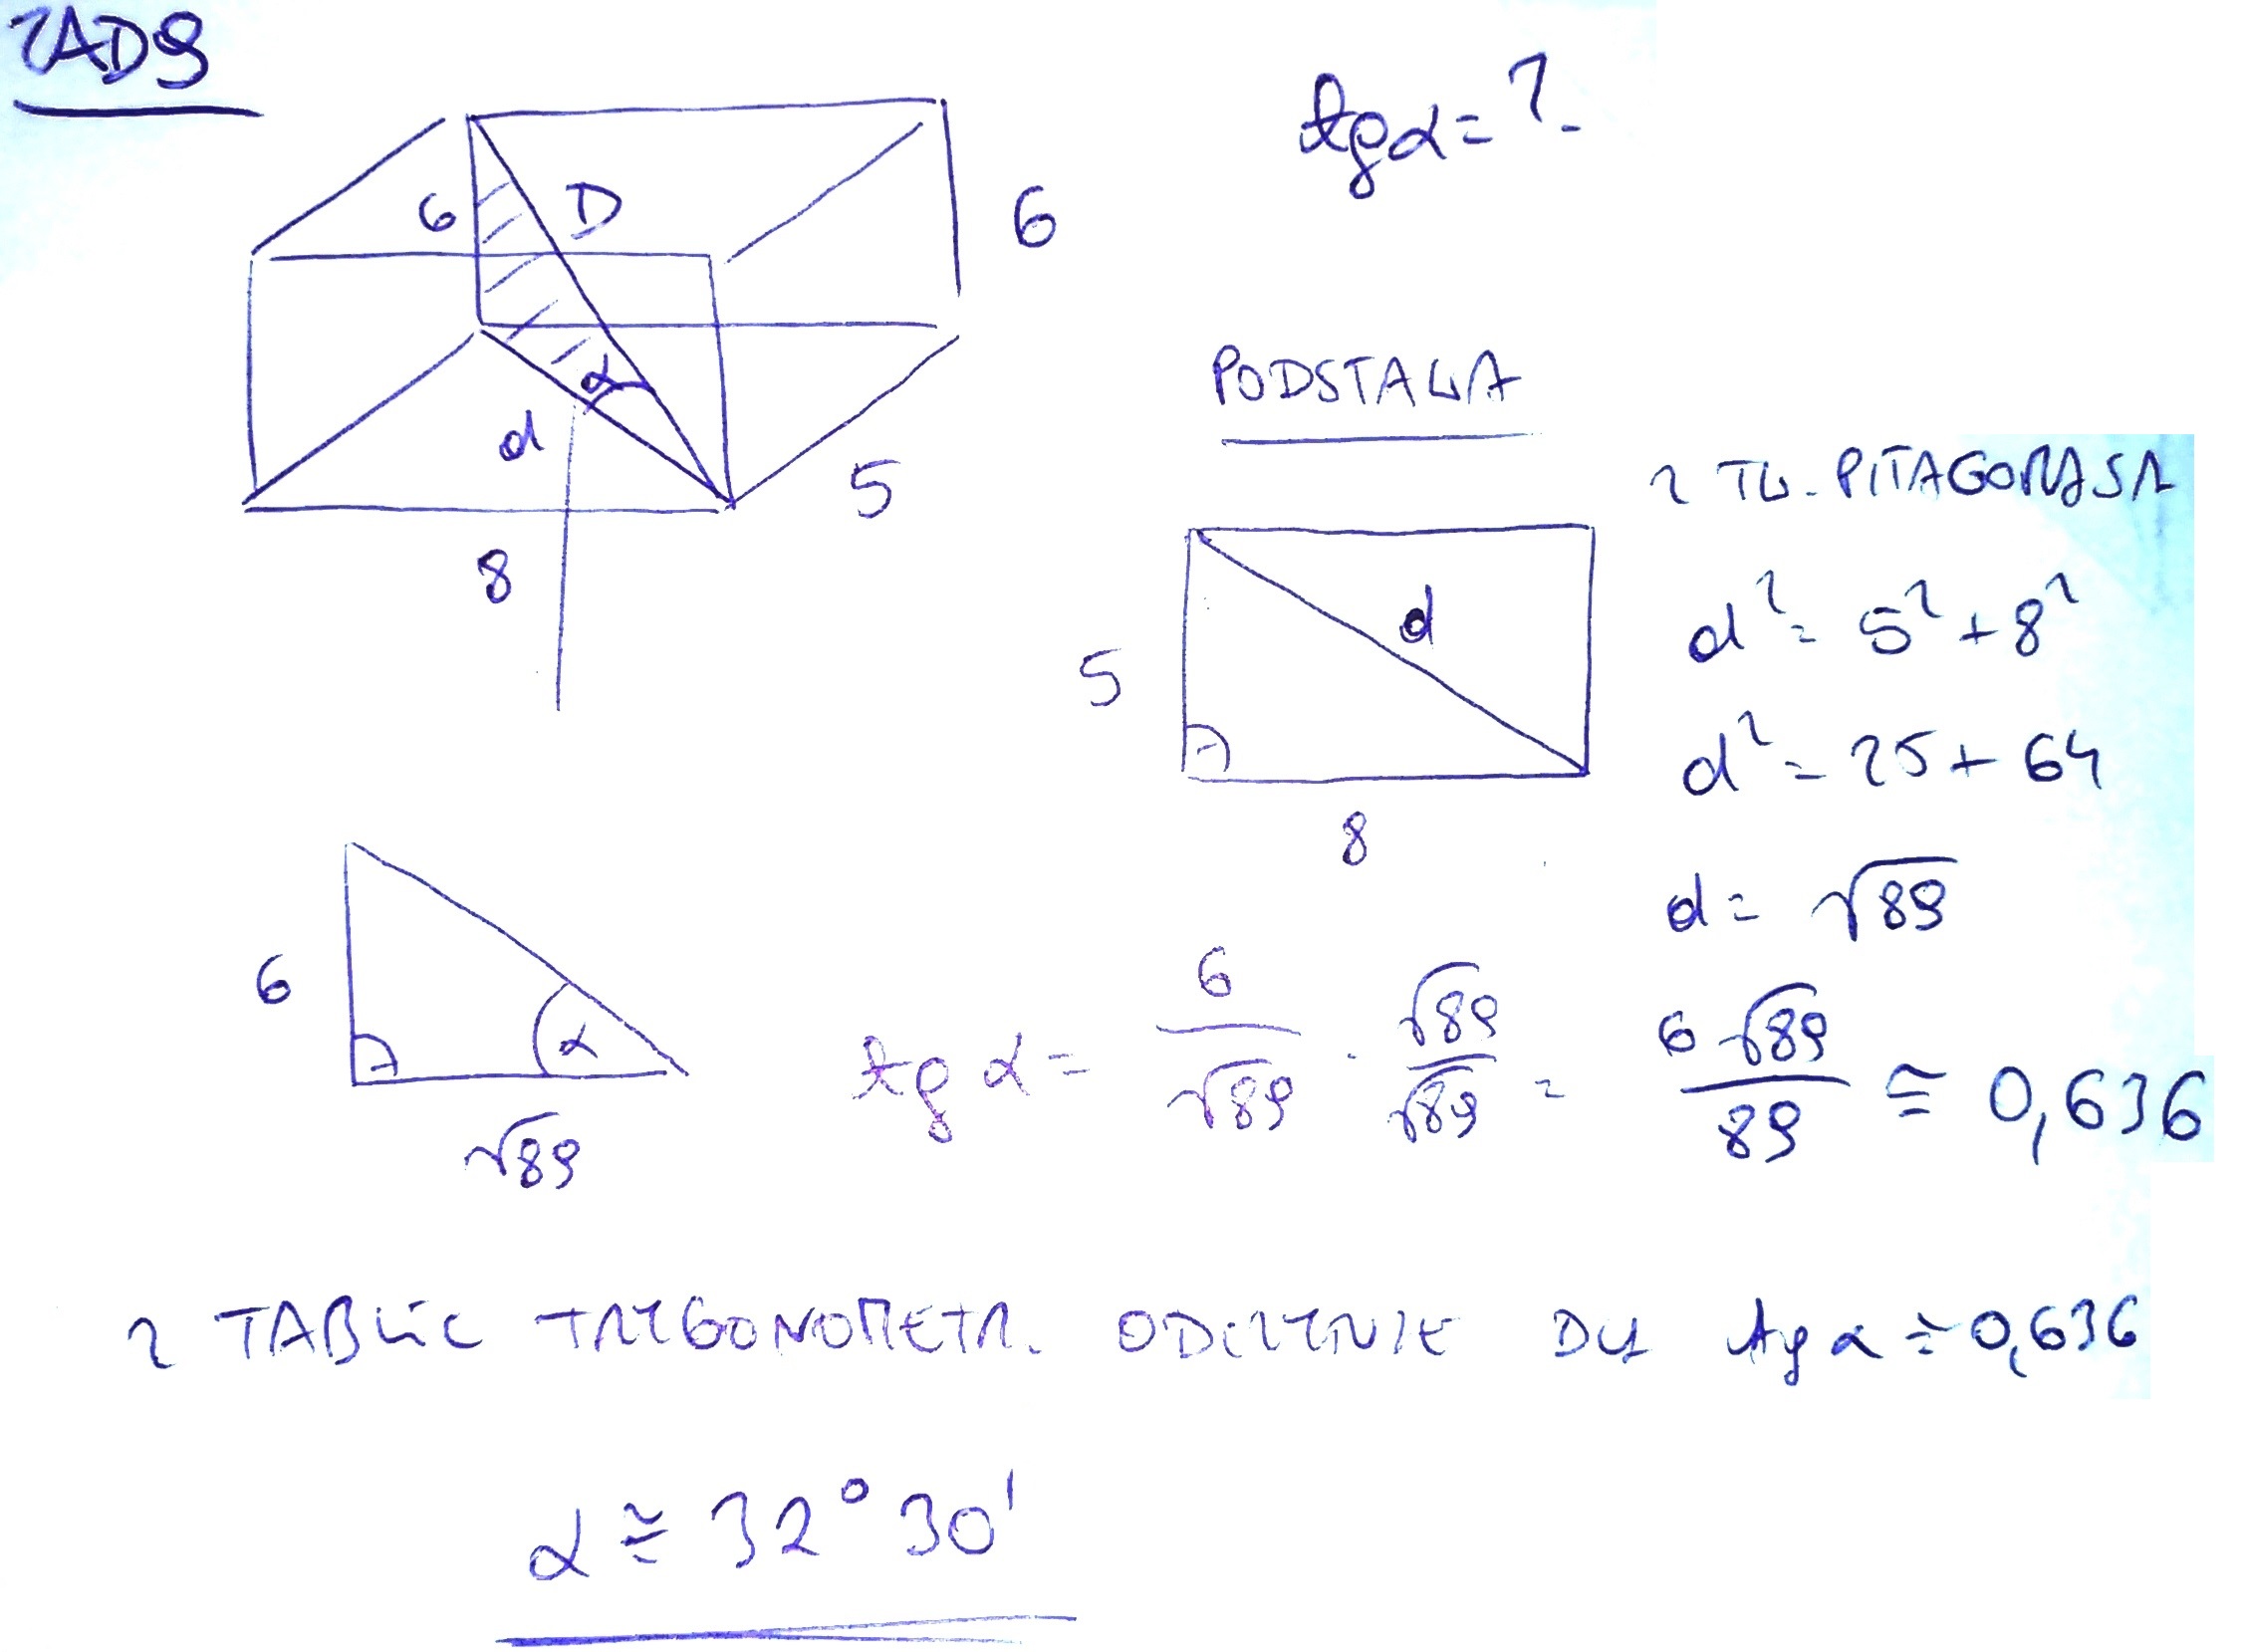 ZAD9
tgα = ?
6 D 6
α
d
5
8
PODSTAWA
Z TW. PITAGORASA
d
5
8
d² = 5² + 8²
d² = 25 + 64
d = √89
6
α
√89
tg α = 6/√89 · √89/√89 = 6√89/89 ≅ 0,636
Z TABLIC TRYGONOMETR. ODCZYTUJĘ DLA tg α ≅ 0,636
α ≅ 32° 30'